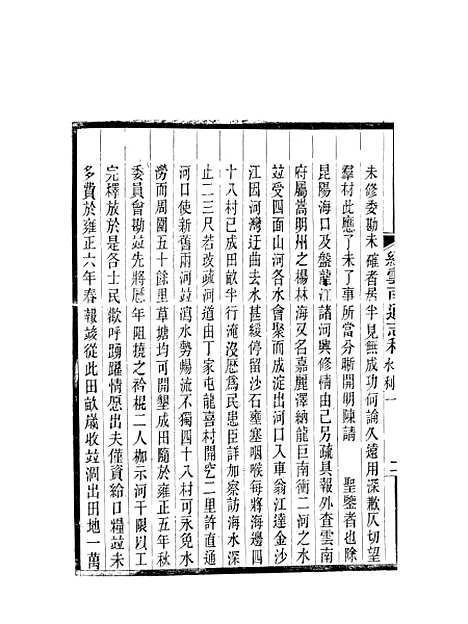 續雲南通志稿 水利一 二
未修委勘未確者居半見無成功何論久遠用深歉仄切望
羣材此應了未了事所當分晰開明陳請 聖鑒者也除
昆陽海口及盤龍江諸河興修情由已另疏具報外查雲南
府屬嵩明州之楊林海又名嘉麗澤納龍巨南衝二河之水
竝受四面山河各水會聚而成淀出河口入車翁江達金沙
江因河灣迂曲去水甚緩停留沙石壅塞咽喉每將海邊四
十八村已成田畝半行淹沒歷為民患臣詳加察訪海水深
止二三尺若改疏河道由丁家屯龍喜村開空二里許直通
河口使新舊兩河竝瀉水勢暢流不獨四十八村可永免水
澇而周圍五十餘里草塘均可開墾成田隨於雍正五年秋
委員會勘竝先將歷年阻撓之衿棍二人枷示河干限以工
完釋放於是各士民歡呼踴躍情愿出夫僅資給口糧竝未
多費於雍正六年春報竣從此田畝歲收竝涸出田地一萬